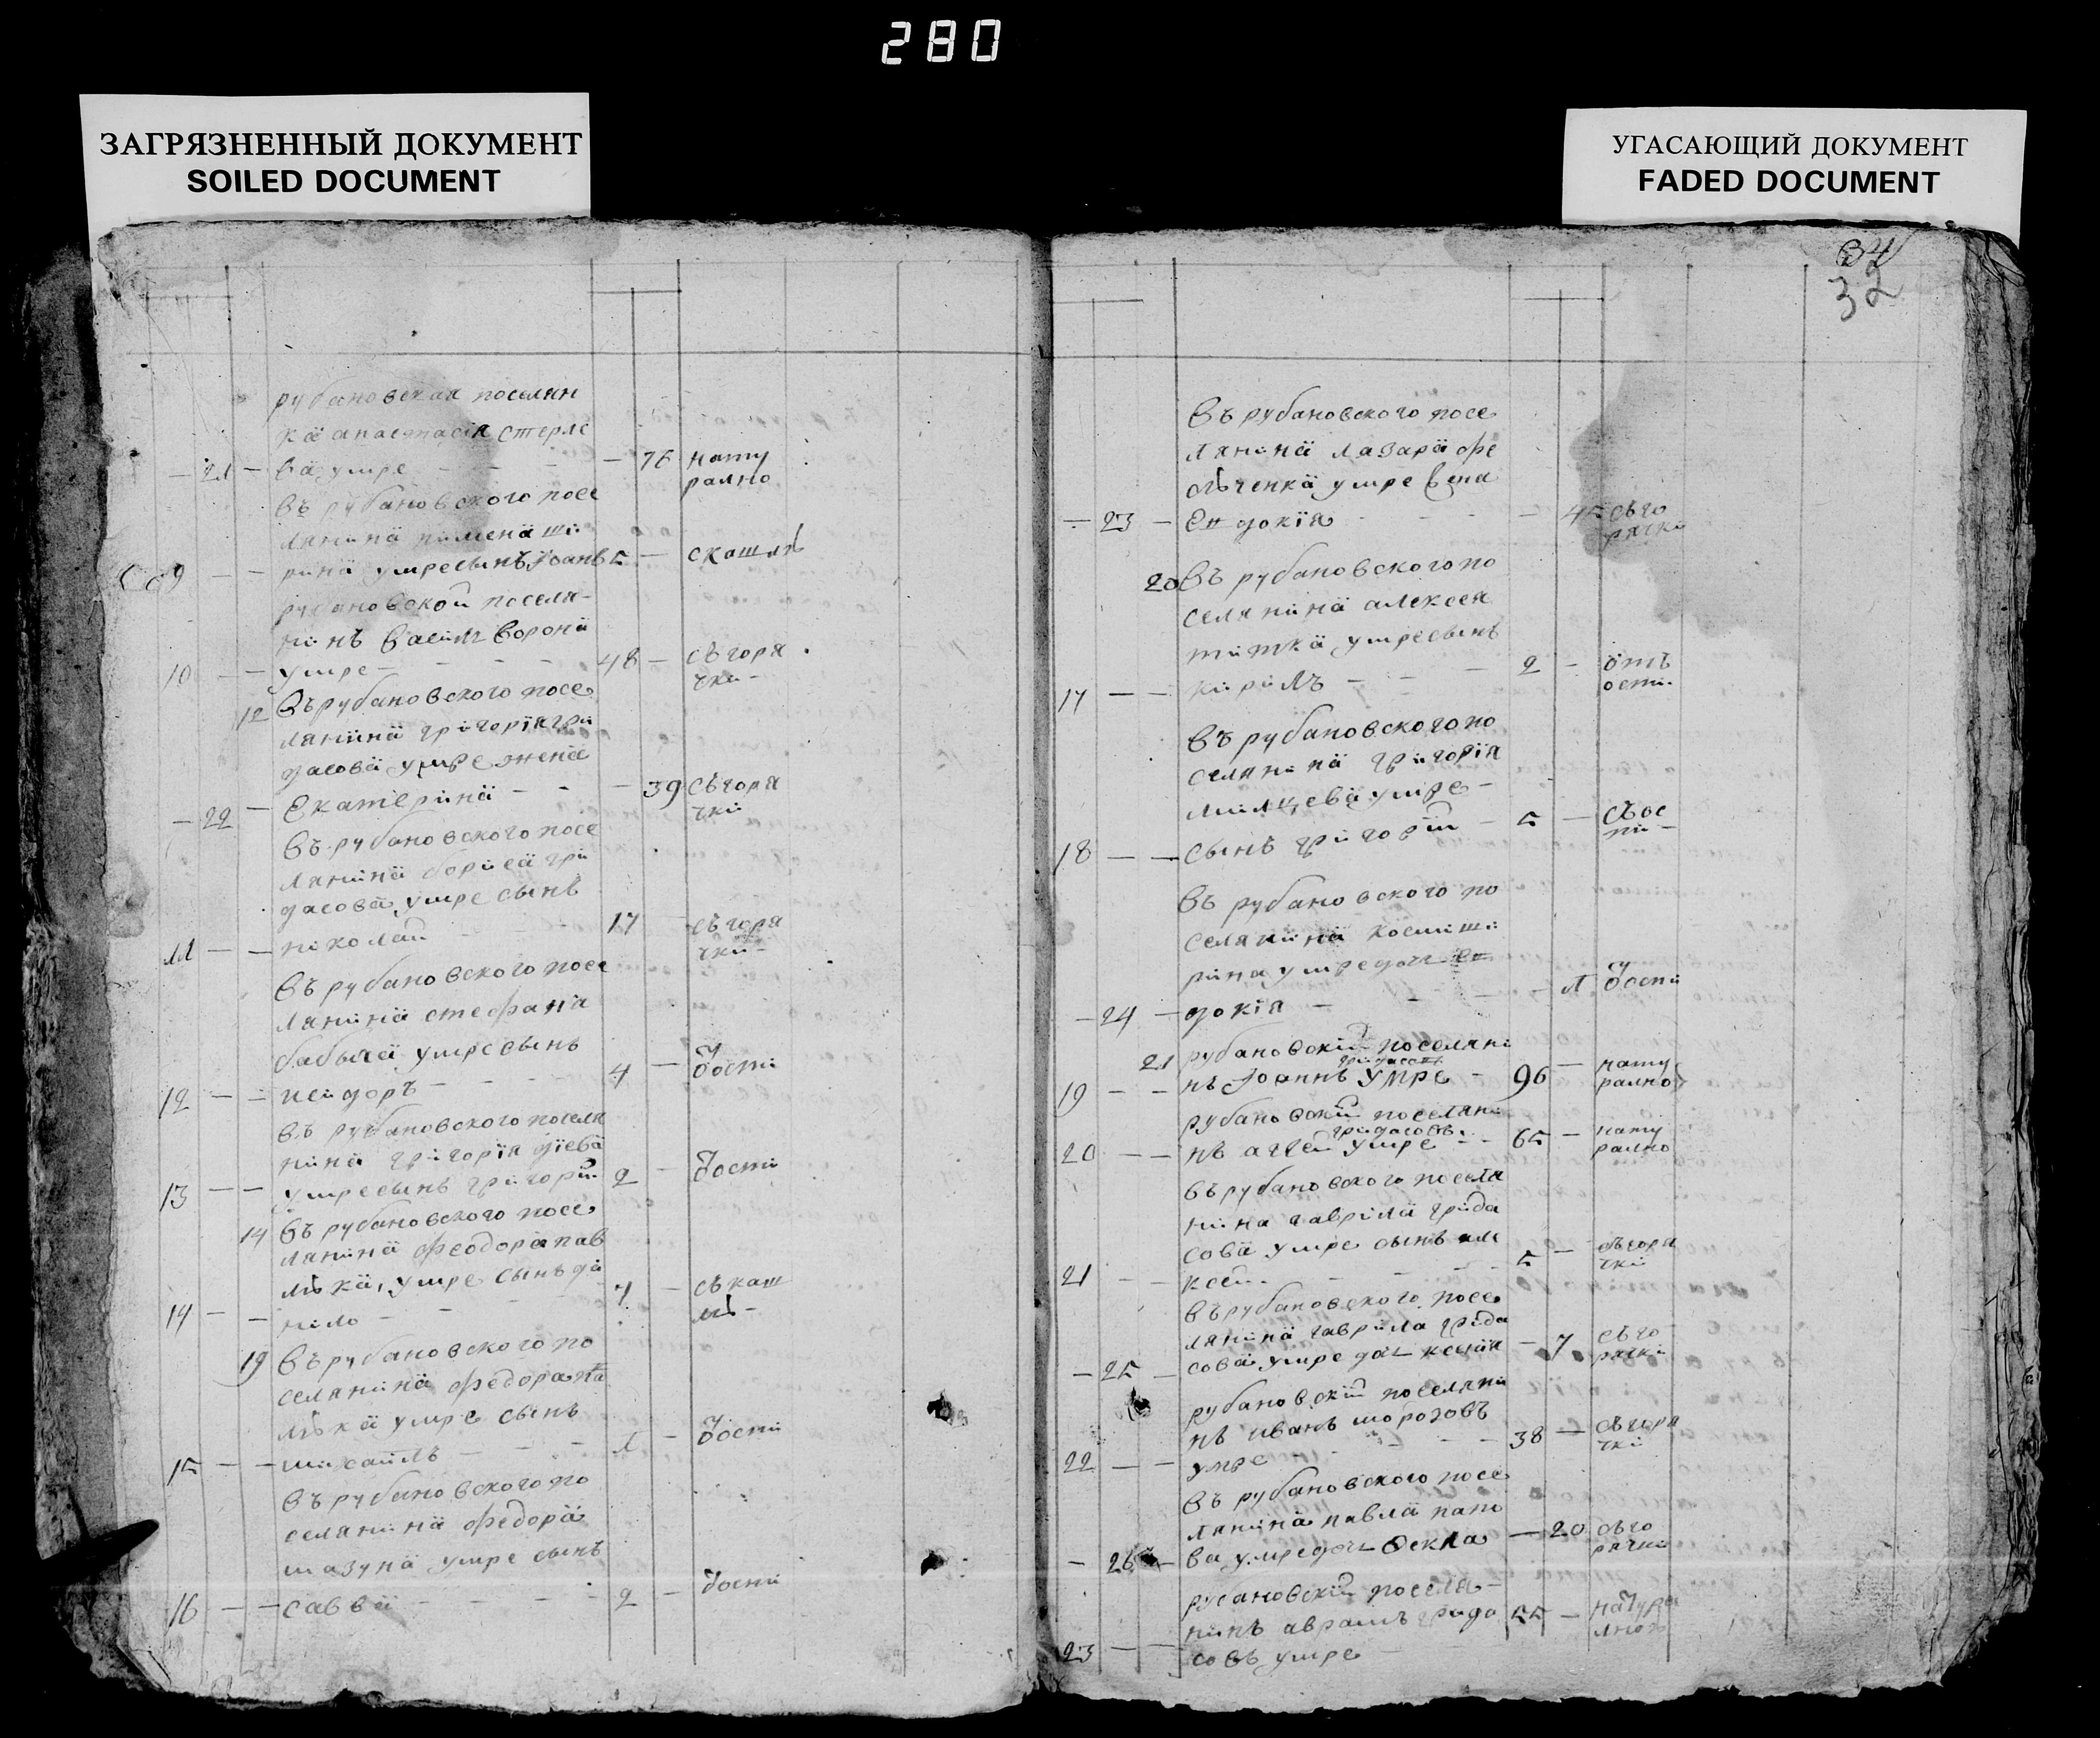 280
ЗАГРЯЗНЕННЫЙ ДОКУМЕНТ
SOILED DOCUMENT
УГАСАЮЩИЙ ДОКУМЕНТ
FADED DOCUMENT
34
32
рубановская поселян
ка анастасія стерле
— 21 — ва умре — 76 нату
рално
въ рубановского посе
лянина пимена ши
9 — — рина умре сынъ Іоанъ 5 — скашля
рубановской поселя-
нинъ васили ворона
10 — умре — 48 — съ горя
чки-
12 въ рубановского посе
лянина григорія гри
дасова умре жена
— 22 — Екатерина — — 39 съ горя
чки
въ рубановского посе
лянина бориса гри
дасова умре сынъ
11 — — николай 17 съ горя
чки-
въ рубановского посе
лянина стефана
бабыча умре сынъ
12 — — исидоръ — 4 — ѿости
въ рубановского поселя
нина григорія
13 — — умре сынъ григорий 2 — ѿости
14 въ рубановского посе
лянина феодора пав
лѣка, умре сынъ да
14 — — нило — 7 — съ каш
лѣ-
19 въ рубановского по
селянина федора па
лѣка умре сынъ
15 — — михаилъ — 1 — ѿости
въ рубановского по
селянина федора
мазуна умре сынъ
16 — — савва — 2 — ѿости
въ рубановского посе
лянина лазара фе
умре жена
— 23 — докія — 45 съ го
рячки
20 въ рубановского по
селянина алексея
титка умре сынъ
17 — — кирилъ — 2 — отъ
ости
въ рубановского по
селянина григорія
умре —
18 — — сынъ григорій — 5 — съ ос
пи-
въ рубановского по
селянина косми ши
рина умре дочь ев
— 24 — докія — 1 ѿости
21 рубановскій поселяни
гридасовъ
19 — — нъ Іоаннъ умре — 96 — нату
рално
рубановскій поселяни
гридасовъ
20 — — нъ аггей умре — 65 — нату
рално
въ рубановского поселя
нина гаврила грида
сова умре сынъ але
21 — — ксей — 5 — съ горя
чки
въ рубановского посе
лянина гаврила грида
— 25 — сова умре доч ксенія — 7 съ го
рячки
рубановскій поселяни
нъ иванъ морозовъ
22 — — умре — 38 — съ горя
чки
въ рубановского посе
лянина павла папо
— 26 — ва умре доч Ѳекла — 20 съ го
рячки
рубановскій поселя-
нинъ аврамъ грида 55 — натура
лно
23 — — совъ умре —